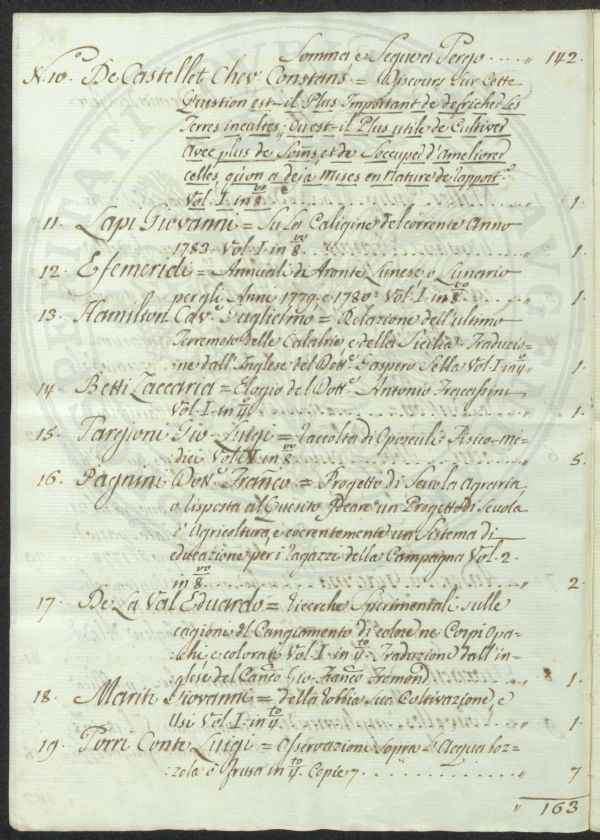 Somma e Segue a Tergo ..... " 142.
N. 10.° De Castellet Chev. Constans = Discours Sur Cette
Question est-il Plus Important de defricher Les
Terres incultes, ou est-il Plus utile de Cultiver
Avec plus de Soins, et de S'occuper d'ameliorer
celles, qu'on a déja mises en Nature de rapport
Vol. I. in 8.vo " 1.
11. Lapi Giovanni = Su La Caligine del corrente Anno
1783. Vol. I. in 8.vo " 1.
12. Efemeridi = Annuali di Aronte Lunese o Lunario
per gli Anni 1779. e 1780. Vol. I. in 8.vo " 1.
13. Hamilson Cav.e Guglielmo = Relazione dell'ultimo
Terremoto delle Calabrie, e della Sicilia Traduzio-
ne dall'Inglese del Dott.e Gaspero Sella Vol. I. in 4.o " 1.
14. Betti Zaccaria = Elogio del Dott.e Antonio Fracassini
Vol. I. in 4.o " 1.
15. Targioni Gio. Luigi = Raccolta di Opuscoli Fisico-me-
dici Vol. V. in 8.vo " 5.
16. Pagnini Dott.e Franco = Progetto di Scuola Agraria
o risposta al Quesito Ideare un Progetto di Scuola
d'Agricoltura, e coerentemente un Sistema di
educazione per i ragazzi della Campagna Vol. 2.
in 8.vo " 2.
17. De La Val Eduardo = ricerche Sperimentali Sulle
cagioni del Cangiamento di colore ne Corpi Opa-
chi e colorati Vol. I. in 4.to Traduzione dall'in-
glese del Can.co Gio. Fran.co Fromond " 1.
18. Mariti Giovanni = della robbia sua Coltivazione, e
Usi Vol. I. in 4.to " 1.
19. Torri Conte Luigi = Osservazioni sopra L'Acqua boz-
zola o Grasa in 4.to Copie 7. " 7
" 163